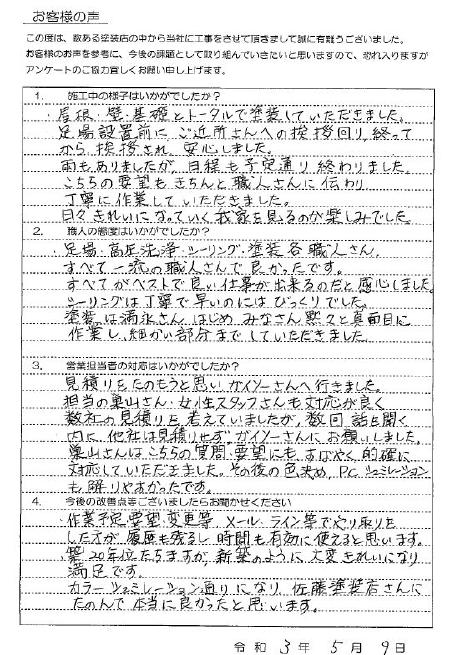 お客様の声
この度は、数ある塗装店の中から当社に工事をさせて頂きまして誠に有難うございました。
お客様のお声を参考に、今後の課題として取り組んでいきたいと思いますので、恐れ入りますが
アンケートのご協力宜しくお願い申し上げます。
1. 施工中の様子はいかがでしたか？
屋根・壁・基礎とトータルで塗装していただきました。
足場設置前にご近所さんへの挨拶回り、終って
から挨拶され、安心しました。
雨もありましたが、日程も予定通り終わりました。
こちらの要望もきちんと職人さんに伝わり
丁寧に作業していただきました。
日々きれいになっていく我家を見るのが楽しみでした。
2. 職人の態度はいかがでしたか？
足場・高圧洗浄・シーリング・塗装各職人さん、
すべて一流の職人さんで良かったです。
すべてがベストで良い仕事が出来るのだと感心しました。
シーリングは丁寧で早いのにはびっくりでした。
塗装は満永さんはじめ、みなさん黙々と真面目に
作業し、細かい部分までしていただきました。
3. 営業担当者の対応はいかがでしたか？
見積りをたのもうと思いガイソーさんへ行きました。
担当の栗山さん・女性スタッフさんも対応が良く
数社の見積りを考えていましたが、数回話を聞く
内に他社は見積りせず、ガイソーさんにお願いしました。
栗山さんはこちらの質問・要望にもすばやく的確に
対応していただきました。その後の色決め、PCシュミレーション
も解りやすかったです。
4. 今後の改善点等ございましたらお聞かせください
作業予定・要望・変更等、メール・ライン等でやり取りを
した方が履歴も残るし時間も有効に使えると思います。
築20年位たちますが、新築のように大変きれいになり
満足です。
カラーシュミレーション通りになり、佐藤塗装店さんに
たのんで本当に良かったと思います。
令和 3年 5月 9日